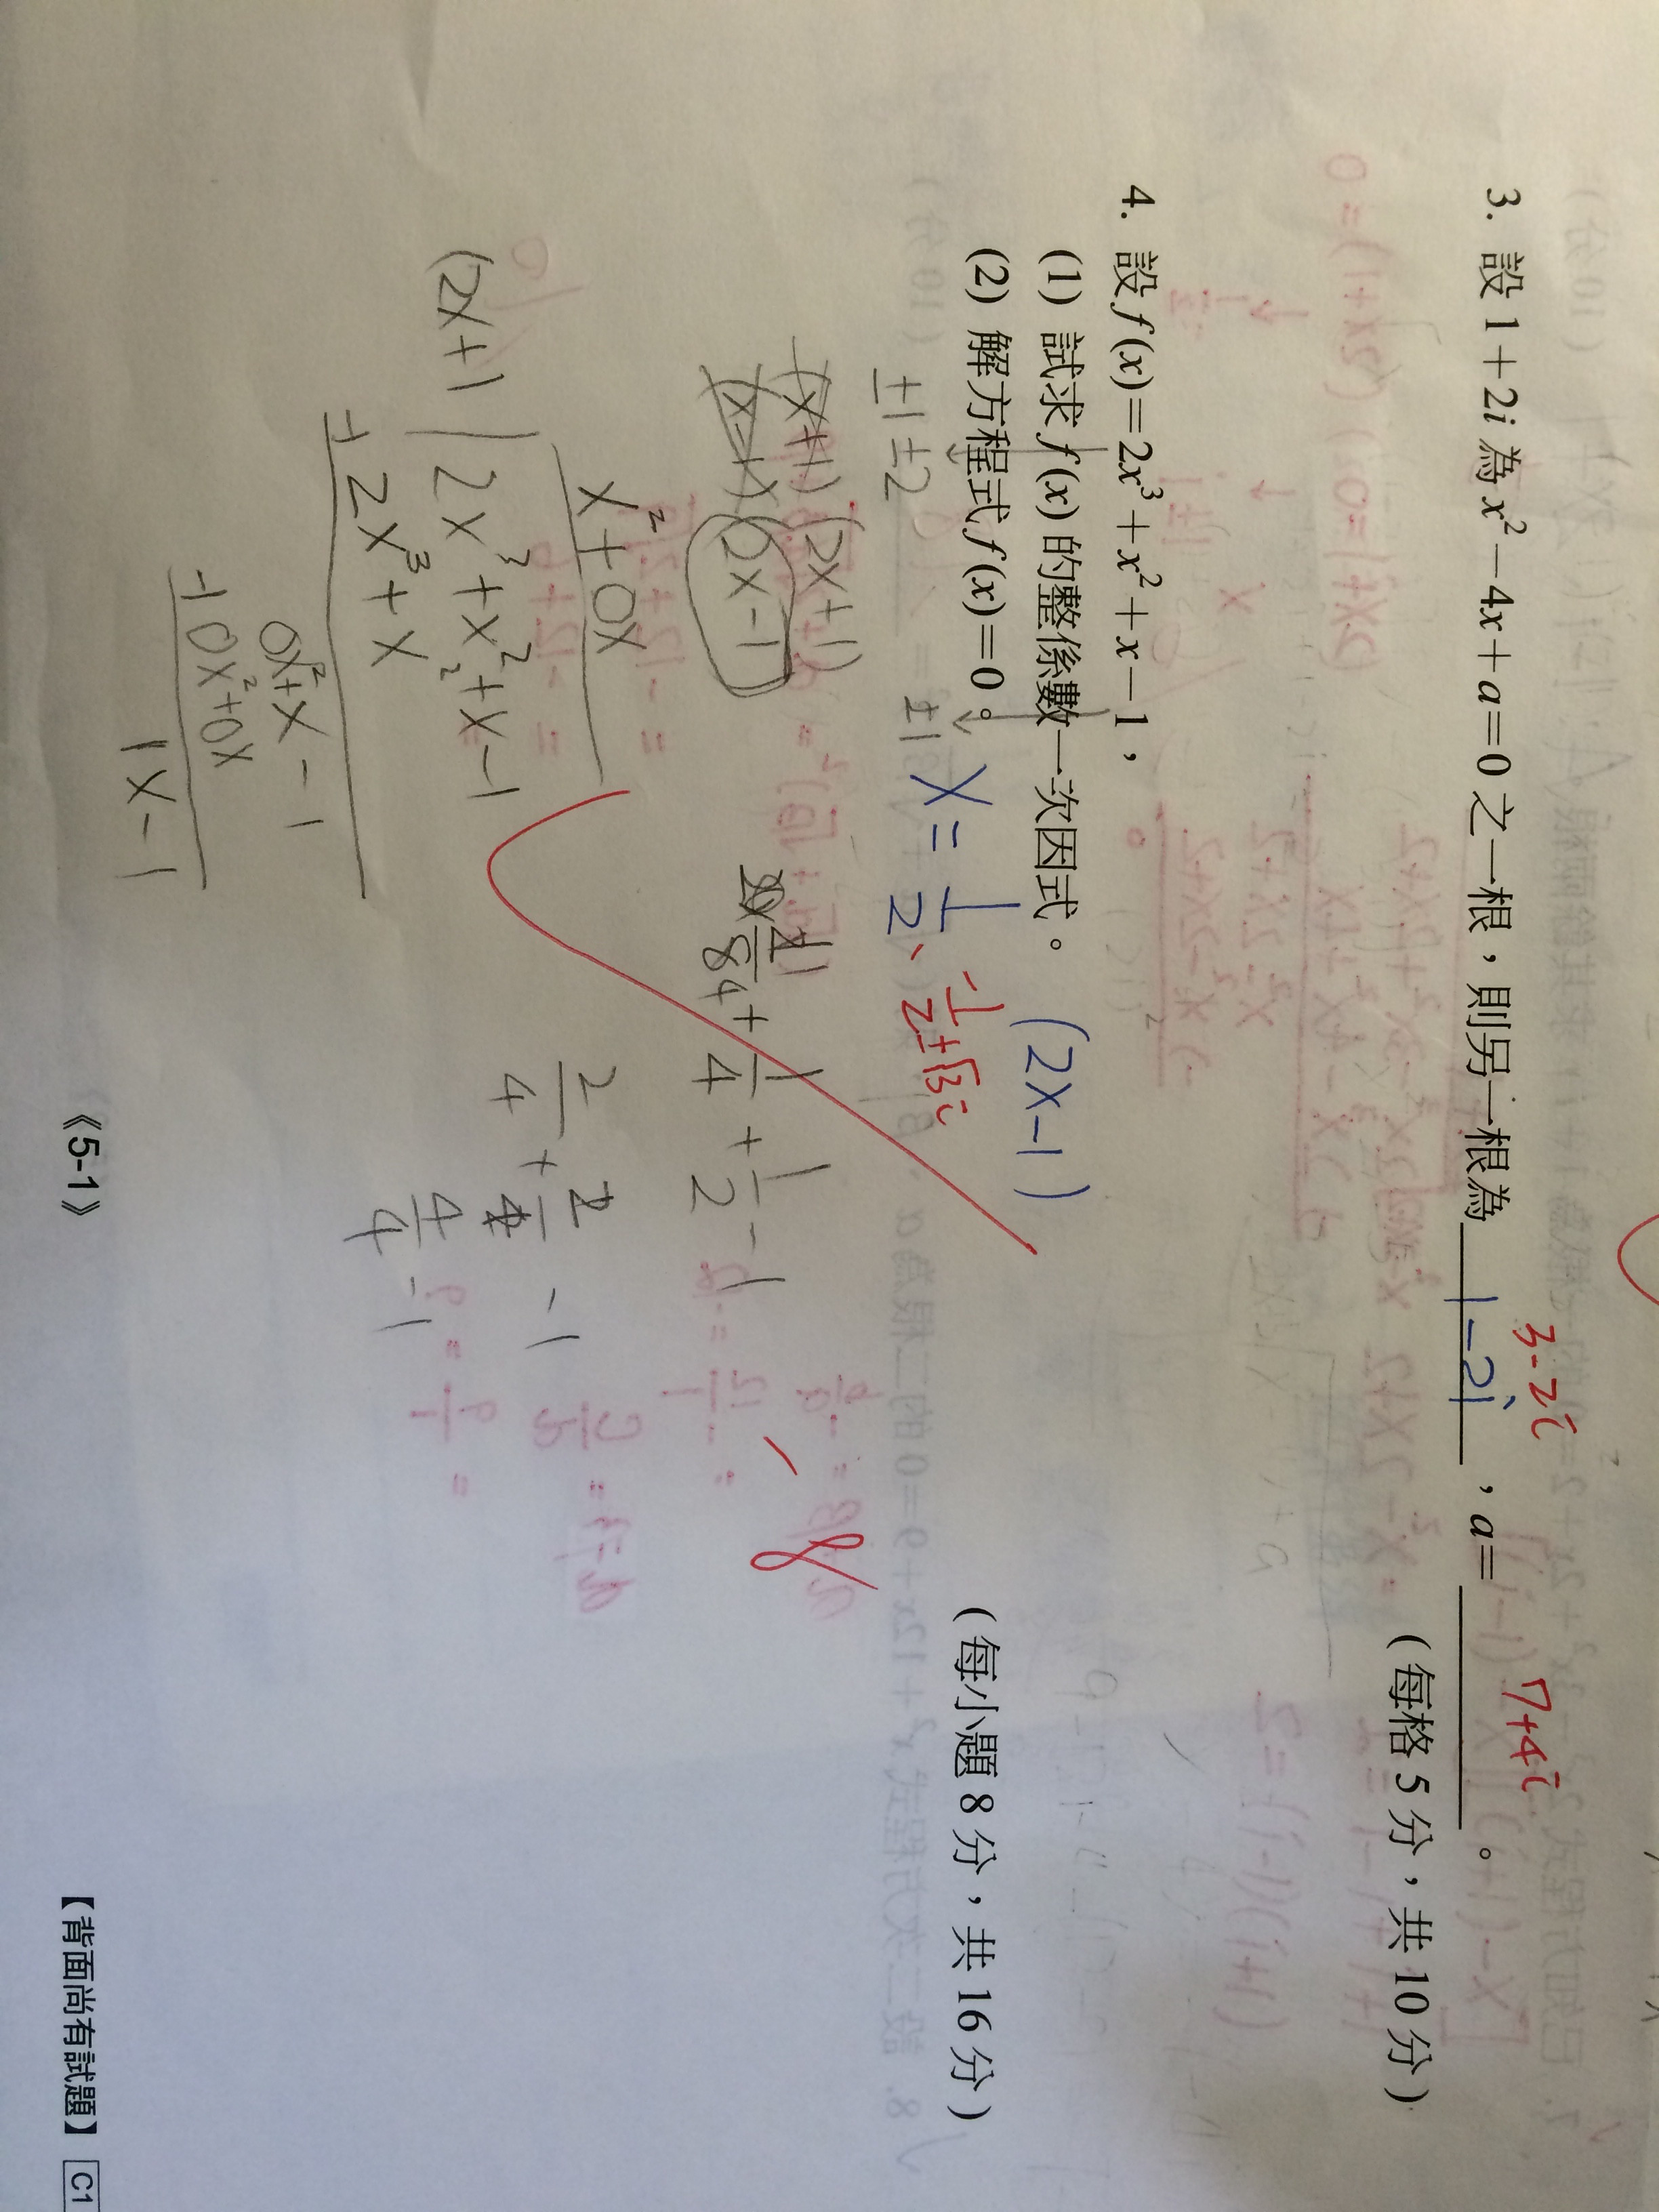 3. 設 1+2i 為 x²−4x+a=0 之一根，則另一根為 1−2i ，a= 。
3-2i
7+4i
(每格 5 分，共 10 分)
4. 設 f(x)=2x³+x²+x−1，
(1) 試求 f(x) 的整係數一次因式。 (2x−1)
(2) 解方程式 f(x)=0。 x= 1/2、 (每小題 8 分，共 16 分)
±1 ±2
±1
(x+1) (2x+1)
(x−1) (2x−1)
8
+ 1/4 + 1/2 − 1
x²+0x
(2x+1) 2x³+x²+x−1
2/4 + − 1
− 2x³+x²
4/4 − 1
0x²+x−1
− 0x²+0x
1x−1
《5-1》
【背面尚有試題】 C1